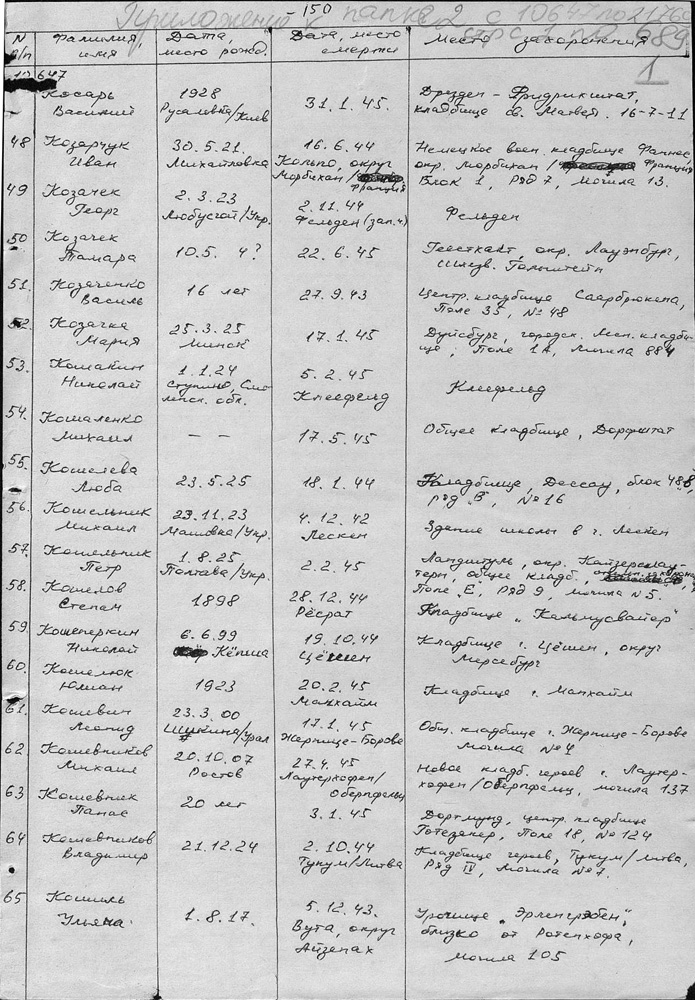 - 150
Приложение к папке 2 с 10647 по 2176
стр с 1 по 689
N п/п Фамилия, имя Дата, место рожд. Дата, место смерти Место захоронения
1
10647
Косарь Василий
1928 Русаловка/Киев
31.1.45.
Дрезден - Фридрихштат, кладбище св. Матвея. 16-7-11
48 Козарчук Иван
30.5.21. Михайловка
16.6.44 Кольпо, округ Морбихан/Франция
Немецкое воен. кладбище
окр. Морбихан/ Франция
Блок 1, Ряд 7, Могила 13.
49 Козачек Георг
2.3.23 /Укр.
2.11.44 Фельден (зап.ч)
Фельден
50 Козачек Тамара
10.5. 4?
22.6.45
Геестхахт, окр. Лауэнбург, Шлезв. Гольштейн
51. Козаченко Василь
16 лет
27.9.43
Центр. кладбище Саарбрюкена, Поле 35, № 48
52. Козачка Мария
25.3.25 Минск
17.1.45
Дуйсбург, городск. Лесн. кладбище, Поле 1А, Могила 884
53. Кошакин Николай
1.1.24 Ступино, Смоленск. обл.
5.2.45 Клеефельд
Клеефельд
54. Кошаленко Михаил
— —
17.5.45
Общее кладбище, Дорфштат
55. Кошелева Люба
23.5.25
18.1.44
Кладбище, Дессау, блок 48 ряд "В", № 16
56. Кошельник Михаил
23.11.23 Машовка/Укр.
4.12.42 Лескен
Здание школы в г. Лескен
57. Кошельник Петр
1.8.25 Полтава/Укр.
2.2.45
Ландштуль, окр. Кайзерслаутерн, общее кладб., Поле "Е", Ряд 9, могила №5.
58. Кошелов Степан
1898
28.12.44 Рёсрат
Кладбище "Кальмусвайер"
59. Кошенеркин Николай
6.6.99 Кёпиша
19.10.44 Цёшен
Кладбище г. Цёшен, округ Мерсебург
60. Кошелюк Юлиан
1923
20.2.45 Манхайм
Кладбище г. Манхайм
61. Кошевин Леонид
23.3.00 Шушкина/Урал
17.1.45 Жарпице-Борове
Общ. кладбище г. Жарпице-Борове Могила № 4
62 Кошевников Михаил
20.10.07 Ростов
27.4.45 Лаутерхофен/Оберпфельц
Новое кладб. героев г. Лаутерхофен/Оберпфельц, могила 137
63 Кошевник Панас
20 лет
3.1.45
Дортмунд, центр. кладбище Готезакер, Поле 18, № 124
64 Кошевников Владимир
21.12.24
2.10.44 Тукум/Литва
Кладбище героев, Тукум/Литва, Ряд IV, Могила №7.
65 Кошиль Ульяна
1.8.17.
5.12.43. Вута, округ Айзенах
Урочище "Эрленгребен", близко от Ротенхофа, могила 105